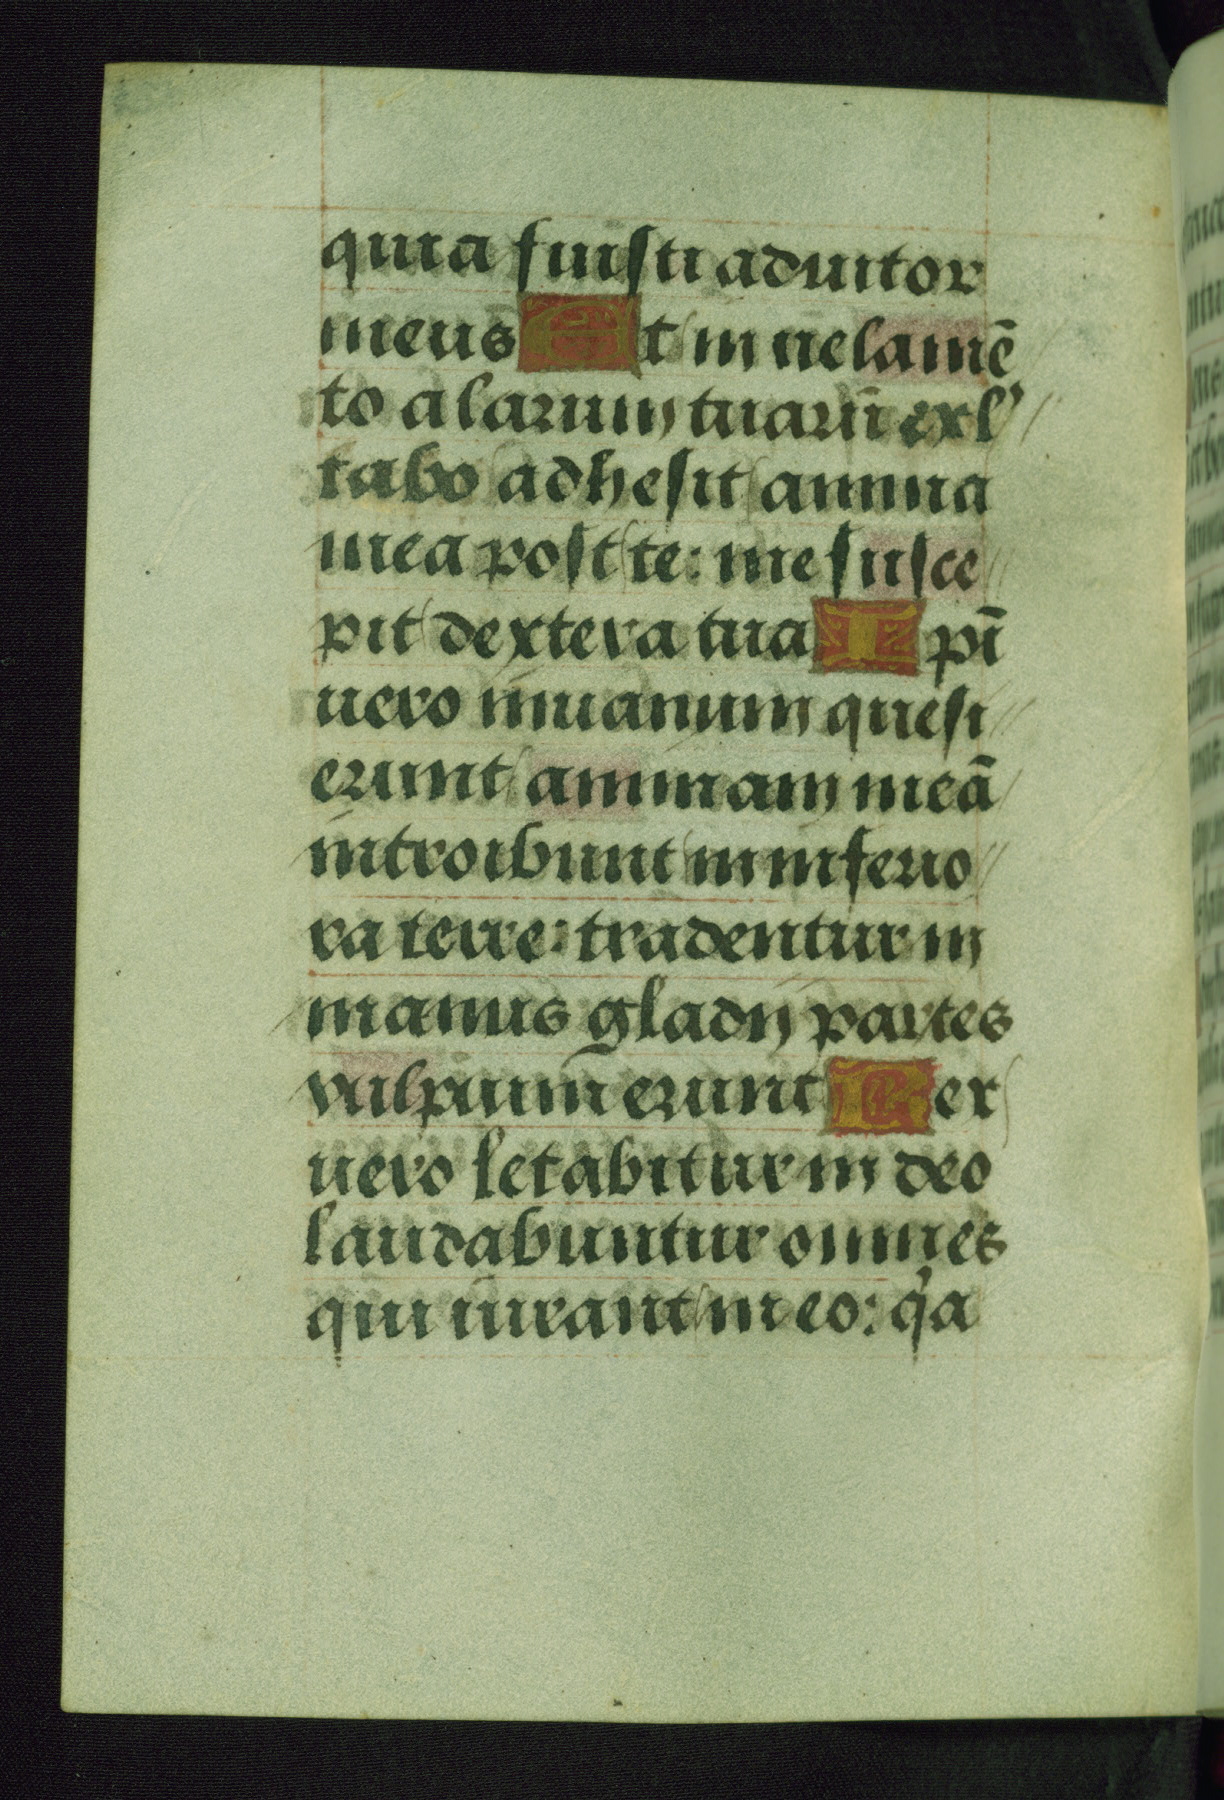 quia fuisti adiutor
meus Et in uelamē
to alarum tuarū exl'
tabo adhesit anima
mea post te: me susce
pit dextera tua Ipī
uero inuanum quesi
erunt animam meā
introibunt in inferio
ra terre: tradentur in
manus gladij partes
vulpium erunt Rex
uero letabitur in deo
laudabuntur omnes
qui iurant in eo: qia